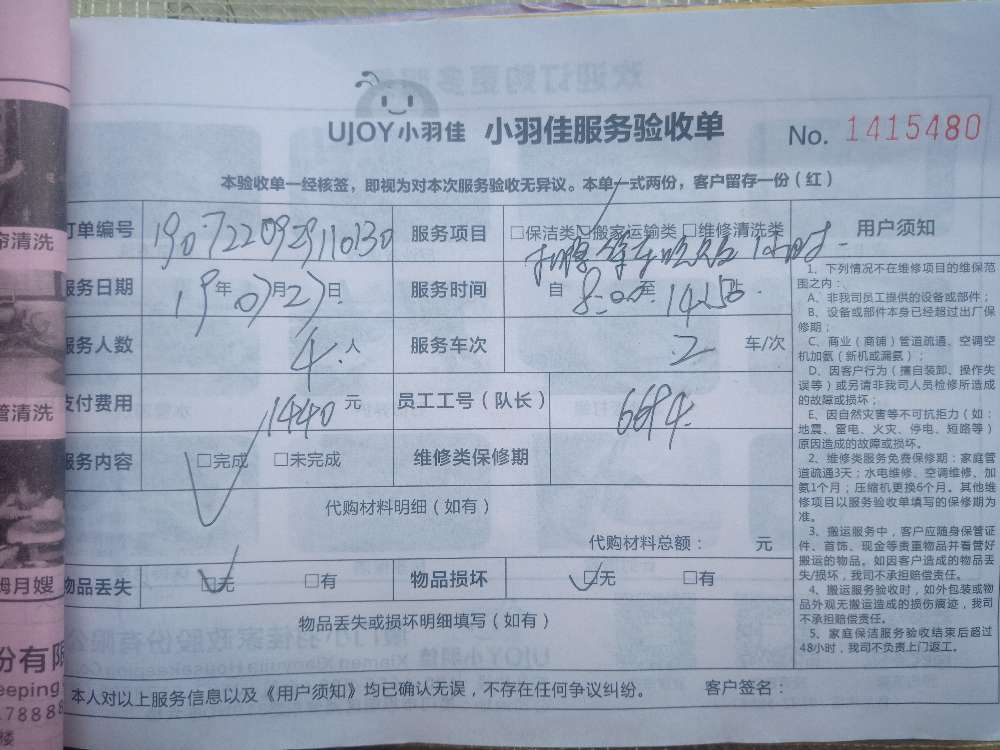 UJOY小羽佳 小羽佳服务验收单 No. 1415480
本验收单一经核签，即视为对本次服务验收无异议。本单一式两份，客户留存一份（红）
订单编号 1907220929110130 服务项目 □保洁类□搬家运输类 □维修清洗类
服务日期 19年07月27日 服务时间 自 8:00至 14:50
服务人数 4人 服务车次 2 车/次
支付费用 1440元 员工工号（队长） 6694
服务内容 □完成 □未完成 维修类保修期
代购材料明细（如有）
代购材料总额： 元
物品丢失 □无 □有 物品损坏 □无 □有
物品丢失或损坏明细填写（如有）
本人对以上服务信息以及《用户须知》均已确认无误，不存在任何争议纠纷。 客户签名：
用户须知
1、下列情况不在维修项目的维保范
围之内：
A、非我司员工提供的设备或部件；
B、设备或部件本身已经超过出厂保
修期；
C、商业（商铺）管道疏通、空调空
机加氨（新机或漏氨）；
D、因客户行为（擅自装卸、操作失
误等）或另请非我司人员检修所造成
的故障或损坏；
E、因自然灾害等不可抗拒力（如：
地震、雷电、火灾、停电、短路等）
原因造成的故障或损坏。
2、维修类服务免费保修期：家庭管
道疏通3天；水电维修、空调维修、加
氨1个月；压缩机更换6个月。其他维
修项目以服务验收单填写的保修期为
准。
3、搬运服务中，客户应随身保管证
件、首饰、现金等贵重物品并看管好
搬运的物品。如因客户造成的物品丢
失/损坏，我司不承担赔偿责任。
4、搬运服务验收时，如外包装或物
品外观无搬运造成的损伤痕迹，我司
不承担赔偿责任。
5、家庭保洁服务验收结束后超过
48小时，我司不负责上门返工。
帘清洗
管清洗
姆月嫂
份有限
eeping
.78888
楼